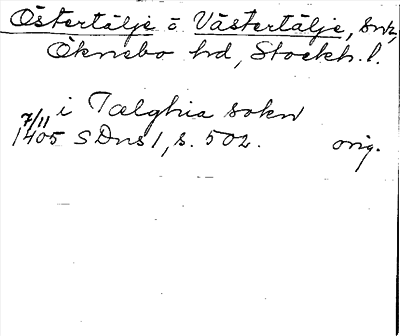 Östertälje o Västertälje, snr,
Öknebo hd, Stockh. l.
i Tælghia sokn
7/11
1405 SDns 1, s. 502. orig.